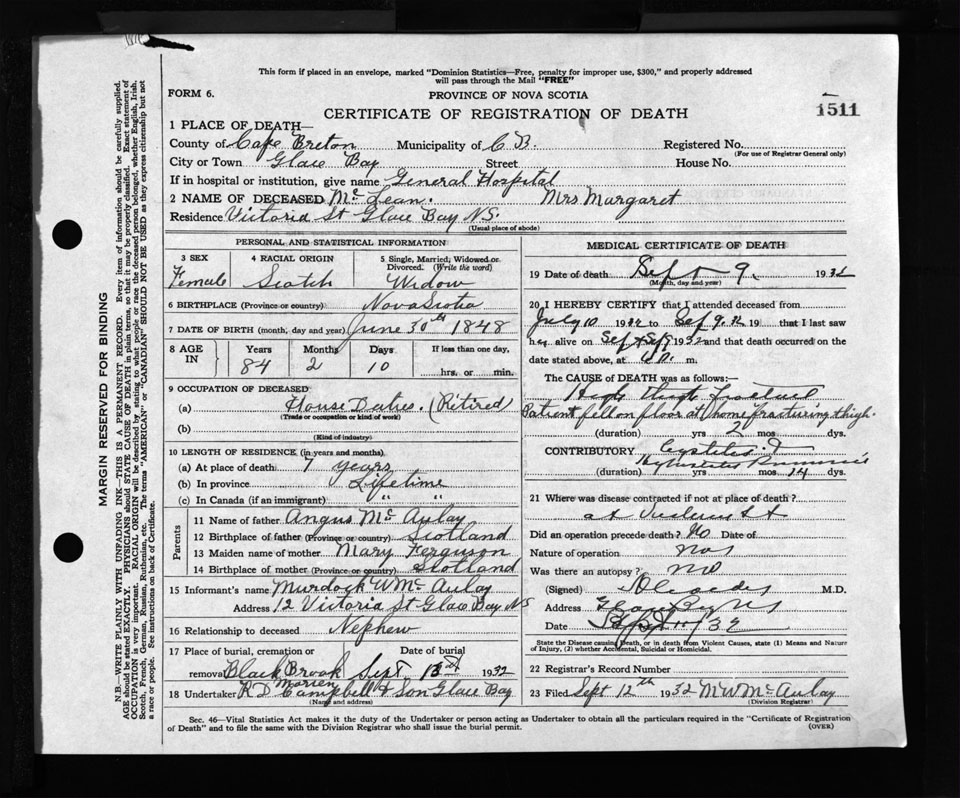 This form if placed in an envelope, marked "Dominion Statistics—Free, penalty for improper use, $300," and properly addressed
will pass through the Mail "FREE"
FORM 6.
PROVINCE OF NOVA SCOTIA
1511
CERTIFICATE OF REGISTRATION OF DEATH
1 PLACE OF DEATH—
County of Cape Breton Municipality of C B. Registered No.
(For use of Registrar General only)
City or Town Glace Bay Street House No.
If in hospital or institution, give name General Hospital
2 NAME OF DECEASED Mc Lean. Mrs Margaret
Residence Victoria St Glace Bay NS.
(Usual place of abode)
PERSONAL AND STATISTICAL INFORMATION
3 SEX
Female
4 RACIAL ORIGIN
Scotch
5 Single, Married, Widowed or
Divorced. (Write the word)
Widow
6 BIRTHPLACE (Province or country) Nova Scotia
7 DATE OF BIRTH (month, day and year) June 30th 1848
8 AGE
IN
Years
84
Months
2
Days
10
If less than one day,
hrs. or min.
9 OCCUPATION OF DECEASED
(a) House Duties. (Retired
(Trade or occupation or kind of work)
(b)
(Kind of industry)
10 LENGTH OF RESIDENCE (in years and months)
(a) At place of death 7 years
(b) In province Lifetime
(c) In Canada (if an immigrant) " "
Parents
11 Name of father Angus Mc Aulay
12 Birthplace of father (Province or country) Scotland
13 Maiden name of mother Mary Ferguson
14 Birthplace of mother (Province or country) Scotland
15 Informant's name Murdock W Mc Aulay
Address 12 Victoria St Glace Bay NS
16 Relationship to deceased Nephew
17 Place of burial, cremation or Date of burial
removal Black Brook Sept 13th 1932
Marien
18 Undertaker R D Campbell & Son Glace Bay
(Name and address)
MEDICAL CERTIFICATE OF DEATH
19 Date of death Sept 9. 1932
(Month, day and year)
20 I HEREBY CERTIFY that I attended deceased from
July 10 1932 to Sep 9. 32 19 that I last saw
her alive on Sep 1932 and that death occurred on the
date stated above, at m.
The CAUSE of DEATH was as follows:—
Patient fell on floor at home fracturing thigh.
(duration) yrs 2 mos dys.
CONTRIBUTORY
(duration) yrs mos 14 dys.
21 Where was disease contracted if not at place of death?
at
Did an operation precede death? No Date of
Nature of operation
Was there an autopsy? no
(Signed) M.D.
Address
Date
State the Disease causing Death, or in death from Violent Causes, state (1) Means and Nature
of Injury, (2) whether Accidental, Suicidal or Homicidal.
22 Registrar's Record Number
23 Filed Sept 12th 1932 M W Mc Aulay
(Division Registrar)
Sec. 46—Vital Statistics Act makes it the duty of the Undertaker or person acting as Undertaker to obtain all the particulars required in the "Certificate of Registration
of Death" and to file the same with the Division Registrar who shall issue the burial permit.
(OVER)
MARGIN RESERVED FOR BINDING
N.B.—WRITE PLAINLY WITH UNFADING INK—THIS IS A PERMANENT RECORD. Every item of information should be carefully supplied.
AGE should be stated EXACTLY. PHYSICIANS should STATE CAUSE OF DEATH in plain terms, so that it may be properly classified. Exact statement of
OCCUPATION is very important. RACIAL ORIGIN will be described by stating to what people or race the deceased person belonged, whether English, Irish,
Scotch, French, German, Russian, Ruthenian, etc. The terms "AMERICAN" or "CANADIAN" SHOULD NOT BE USED as they express citizenship but not
a race or people. See instructions on back of Certificate.